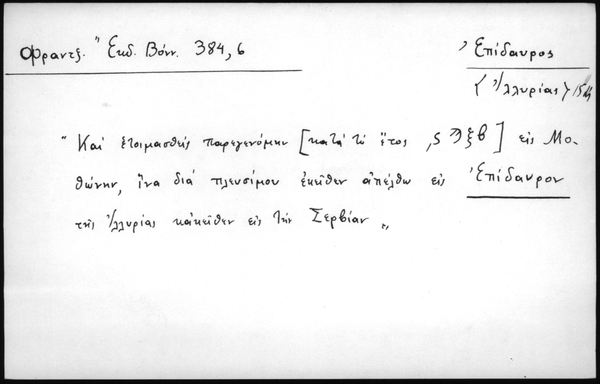 Φραντζ. " Ἐκδ. Βόνν. 384,6
Ἐπίδαυρος
< Ἰλλυρίας >
" Καὶ ἑτοιμασθεὶς παρεγενόμην [κατὰ τὸ ἔτος ,ςϠξβ] εἰς Μο-
θώνην, ἵνα διὰ πλευσίμου ἐκεῖθεν ἀπέλθω εἰς Ἐπίδαυρον
τῆς Ἰλλυρίας κἀκεῖθεν εἰς τὴν Σερβίαν "